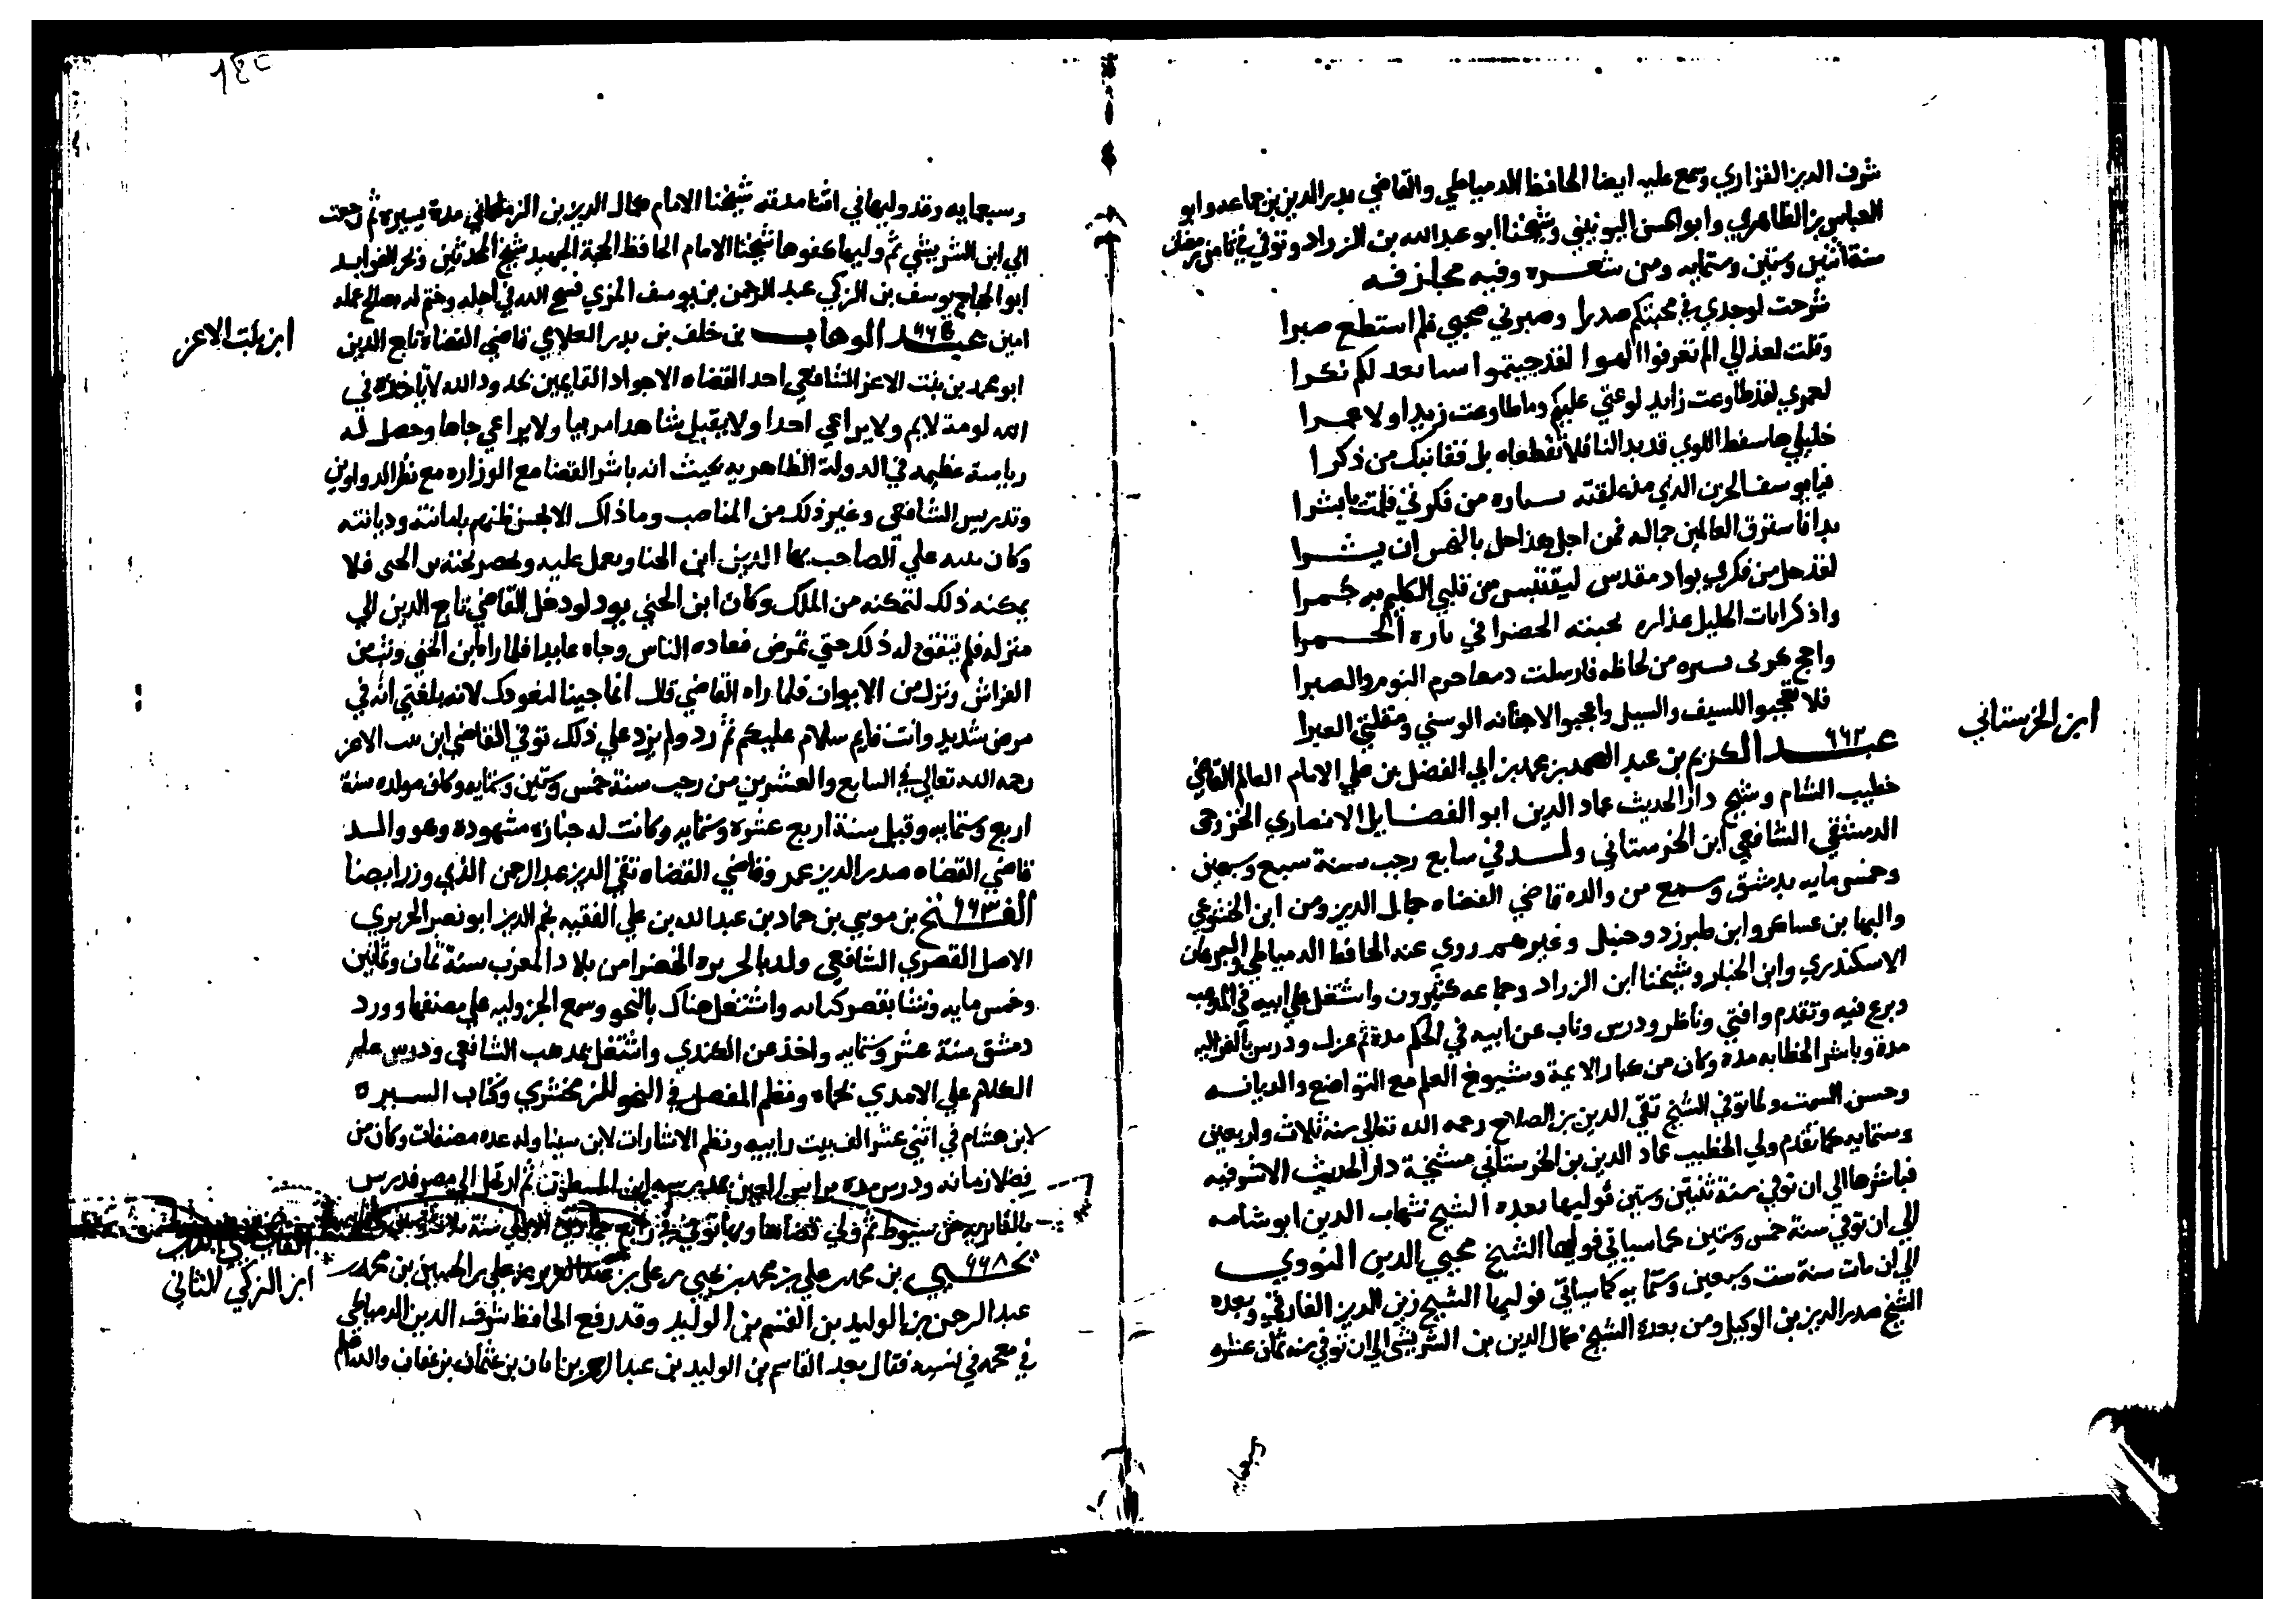 شرف الدين الفزاري وسمع عليه ايضا الحافظ الدمياطي والقاضي بدر الدين بن جماعه وابو
العباس بن الظاهري وابو الحسن اليونيني وشيخنا ابو عبد الله بن الزراد وتوفي في ثامن رمضان
سنة اثنين وستين وستمايه ومن شعره وفيه مجازفه
شرحت لوجدي في محبتكم صدرا وصبرني صحبي فلم استطع صبرا
وقلت لعذالي الم تعرفوا الهوا لقد جيتموا شيا بعد لكم نكرا
لعمري لقد طاوعت زايد لوعتي عليكم وما طاوعت زيدا ولا عمرا
خليلي ها سقط اللوي قد بدا لنا فلا تقطعاه بل قفا نبك من ذكرا
فيا يوسف الحزن الذي مذ علقته من فكرتي قلت يا بشرا
بدا فاسترق العالمين جماله فمن اجل هذا حل بالنفس ان يشرا
لقد حل من فكري بواد مقدس ليقتبس من قلبي الكليم به جمرا
واذكر ايات الخليل عذاره بجنته الخضرا في ناره الحمرا
من لحاظه فارسلت دمعا حرم النوم والصبرا
فلا تعجبوا للسيف والسيل واعجبوا لاجفانه الوسني ومقلتي العبرا
٦٦٢
عبد الكريم بن عبد الصمد بن محمد بن ابي الفضل بن علي الامام العالم القاضي
ابن الحرستاني
خطيب الشام وشيخ دار الحديث عماد الدين ابو الفضايل الانصاري الخزرجي
الدمشقي الشافعي ابن الحرستاني ولد في سابع رجب سنة سبع وسبعين
وخمس مايه بدمشق وسمع من والده قاضي القضاه جمال الدين ومن ابن الخشوعي
والبها بن عساكر وابن طبرزد وحنبل وغيرهم روي عنه الحافظ الدمياطي والبرهان
الاسكندري وابن الخباز وشيخنا ابن الزراد وجماعه كثيرون واشتغل علي ابيه في المذهب
وبرع فيه وتقدم وافتي وناظر ودرس وناب عن ابيه في الحكم مدة ثم عزل ودرس بالغزاليه
مدة وباشر الخطابه مدة وكان من كبار الايمة وشيوخ العلم مع التواضع والديانه
وحسن السمت ولما توفي الشيخ تقي الدين بن الصلاح رحمه الله تعالي سنه ثلاث واربعين
وستمايه كما تقدم ولي الخطيب عماد الدين بن الحرستاني مشيخة دار الحديث الاشرفيه
فباشرها الي ان توفي سنة ثنتين وستين فوليها بعده الشيخ شهاب الدين ابو شامه
الي ان توفي سنة خمس وستين كما سياتي فوليها الشيخ محيي الدين النووي
الي ان مات سنة ست وسبعين وستمايه كما سياتي فوليها الشيخ زين الدين الفارقي وبعده
الشيخ صدر الدين بن الوكيل ومن بعده الشيخ كمال الدين بن الشريشي الي ان توفي سنه ثمان عشره
وسبعمايه وقد وليها في اثنا مدته شيخنا الامام كمال الدين بن الزملكاني مدة يسيره ثم رجعت
الي ابن الشريشي ثم وليها كفوها شيخنا الامام الحافظ الحجة الجهبد شيخ المحدثين وفخر الفوايد
ابو الحجاج يوسف بن الزكي عبد الرحمن بن يوسف المزي فسح الله في اجله وختم له بصالح عمله
امين عبد الوهاب بن خلف بن بدر العلامي قاضي القضاة تاج الدين
ابن بنت الاعز
ابو محمد بن بنت الاعز الشافعي احد القضاه الاجواد القايمين بحدود الله لا تاخذه في
الله لومة لايم ولا يراعي احدا ولا يقبل شاهدا مريبا ولا يراعي جاها وحصل له
رياسة عظيمه في الدولة الظاهريه بحيث انه باشر القضا مع الوزاره مع نظر الدواوين
وتدريس الشافعي وغير ذلك من المناصب وما ذاك الا لحسن ظنهم بامانته وديانته
وكان علي الصاحب بها الدين ابن الحنا ويعمل عليه فلا
يمكنه ذلك لتمكنه من الملك وكان ابن الحني يود لو دخل القاضي تاج الدين الي
منزله فلم يتفق له ذلك حتي تمرض فعاده الناس وجاه عايدا فلما راه ابن الحني وثب من
الفراش ونزل من الايوان فلما راه القاضي قال انما جينا لنعودك لانه بلغني انك في
مرض شديد وانت قايم سلام عليكم ثم رد ولم يزد علي ذلك توفي القاضي ابن بنت الاعز
رحمه الله تعالي في السابع والعشرين من رجب سنة خمس وستين وستمايه وكان مولده سنة
اربع وستمايه وقيل سنة اربع عشره وستمايه وكانت له جنازه مشهودة وهو والد
قاضي القضاه صدر الدين عمر وقاضي القضاه تقي الدين عبد الرحمن الذي وزر ايضا
٦٦٣
الفتح بن موسي بن حماد بن عبد الله بن علي الفقيه نجم الدين ابو نصر الجزيري
الاصل القصري الشافعي ولد بالجزيره الخضرا من بلاد المغرب سنة ثمان وثمانين
وخمس مايه ونشا بقصر كتامه واشتغل هناك بالنحو وسمع الجزوليه علي مصنفها وورد
دمشق سنة عشر وستمايه واخذ عن الكندي واشتغل بمذهب الشافعي ودرس علم
الكلام علي الامدي بحماه ونظم المفصل في النحو للزمخشري وكتاب السيره
لابن هشام في اثني عشر الف بيت راييه ونظم الاشارات لابن سينا وله عده مصنفات وكان من
فضلا زمانه ودرس مده براس العين ثم ارتحل الي مصر فدرس
بالفايزيه من سيوط ثم ولي قضاها وبها توفي في رابع جمادي الاولي سنة
٦٦٨
يحيي بن محمد بن علي بن محمد بن يحيي بن علي بن عبد العزيز بن علي بن الحسين بن محمد بن
ابن الزكي الثاني
عبد الرحمن بن الوليد بن القسم بن الوليد وقد رفع الحافظ شرف الدين الدمياطي
في معجمه في نسبه فقال بعد القاسم بن الوليد بن عبد الرحمن بن ابان بن عثمان بن عفان والله اعلم